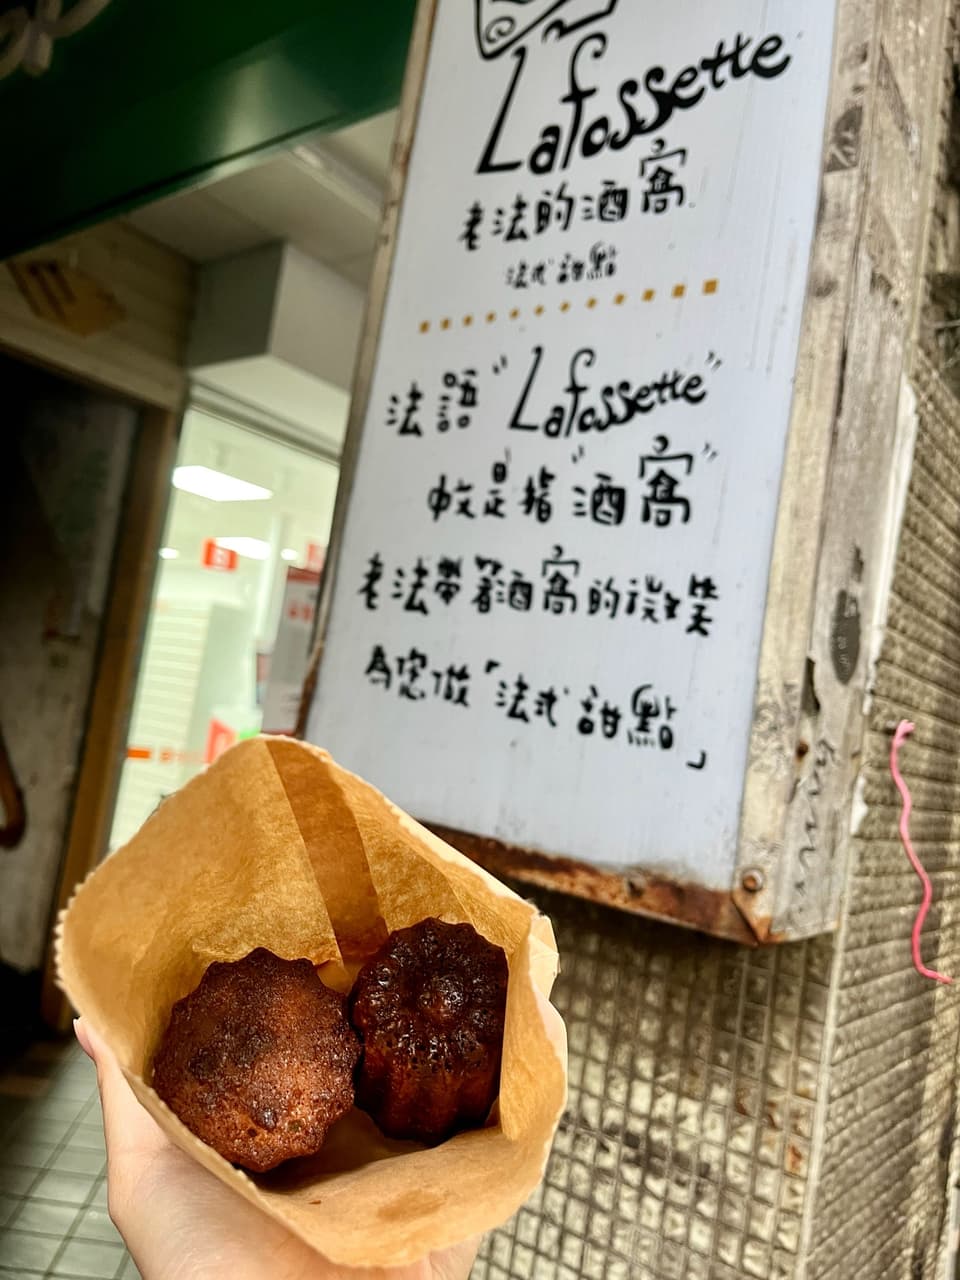 Lafossette
老法的酒窩
法式甜點
法語"Lafossette"
也是指"酒窩"
老法帶著酒窩的微笑
為您做「法式甜點」